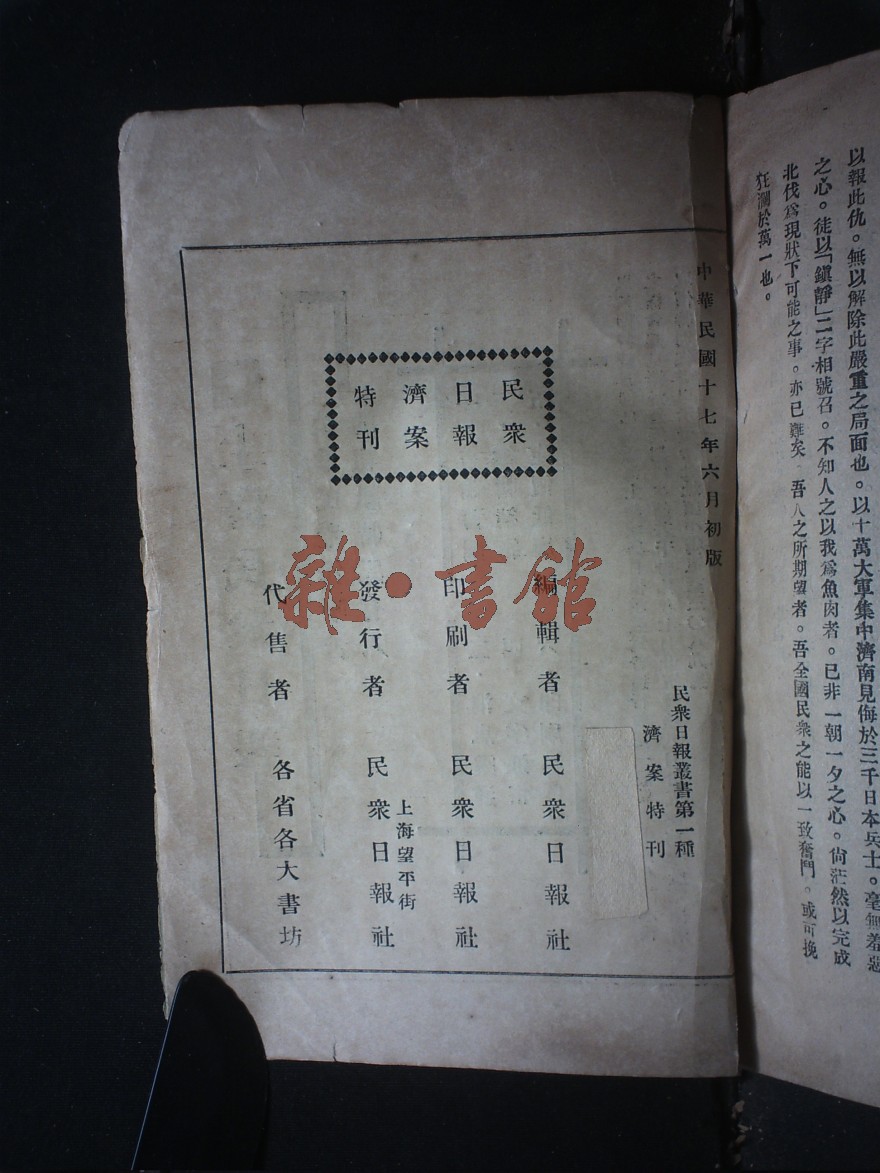 以報此仇。無以解除此嚴重之局面也。以十萬大軍集中濟南見侮於三千日本兵士。毫無羞惡
之心。徒以「鎭靜」二字相號召。不知人之以我爲魚肉者。已非一朝一夕之心。尙茫然以完成
北伐爲現狀下可能之事。亦已難矣 吾人之所期望者。吾全國民衆之能以一致奮鬥。或可挽
狂瀾於萬一也。
中華民國十七年六月初版
民衆日報叢書第一種
濟案特刊
民衆
日報
濟案
特刊
編輯者 民衆日報社
印刷者 民衆日報社
上海望平街
發行者 民衆日報社
代售者 各省各大書坊
雜·書館